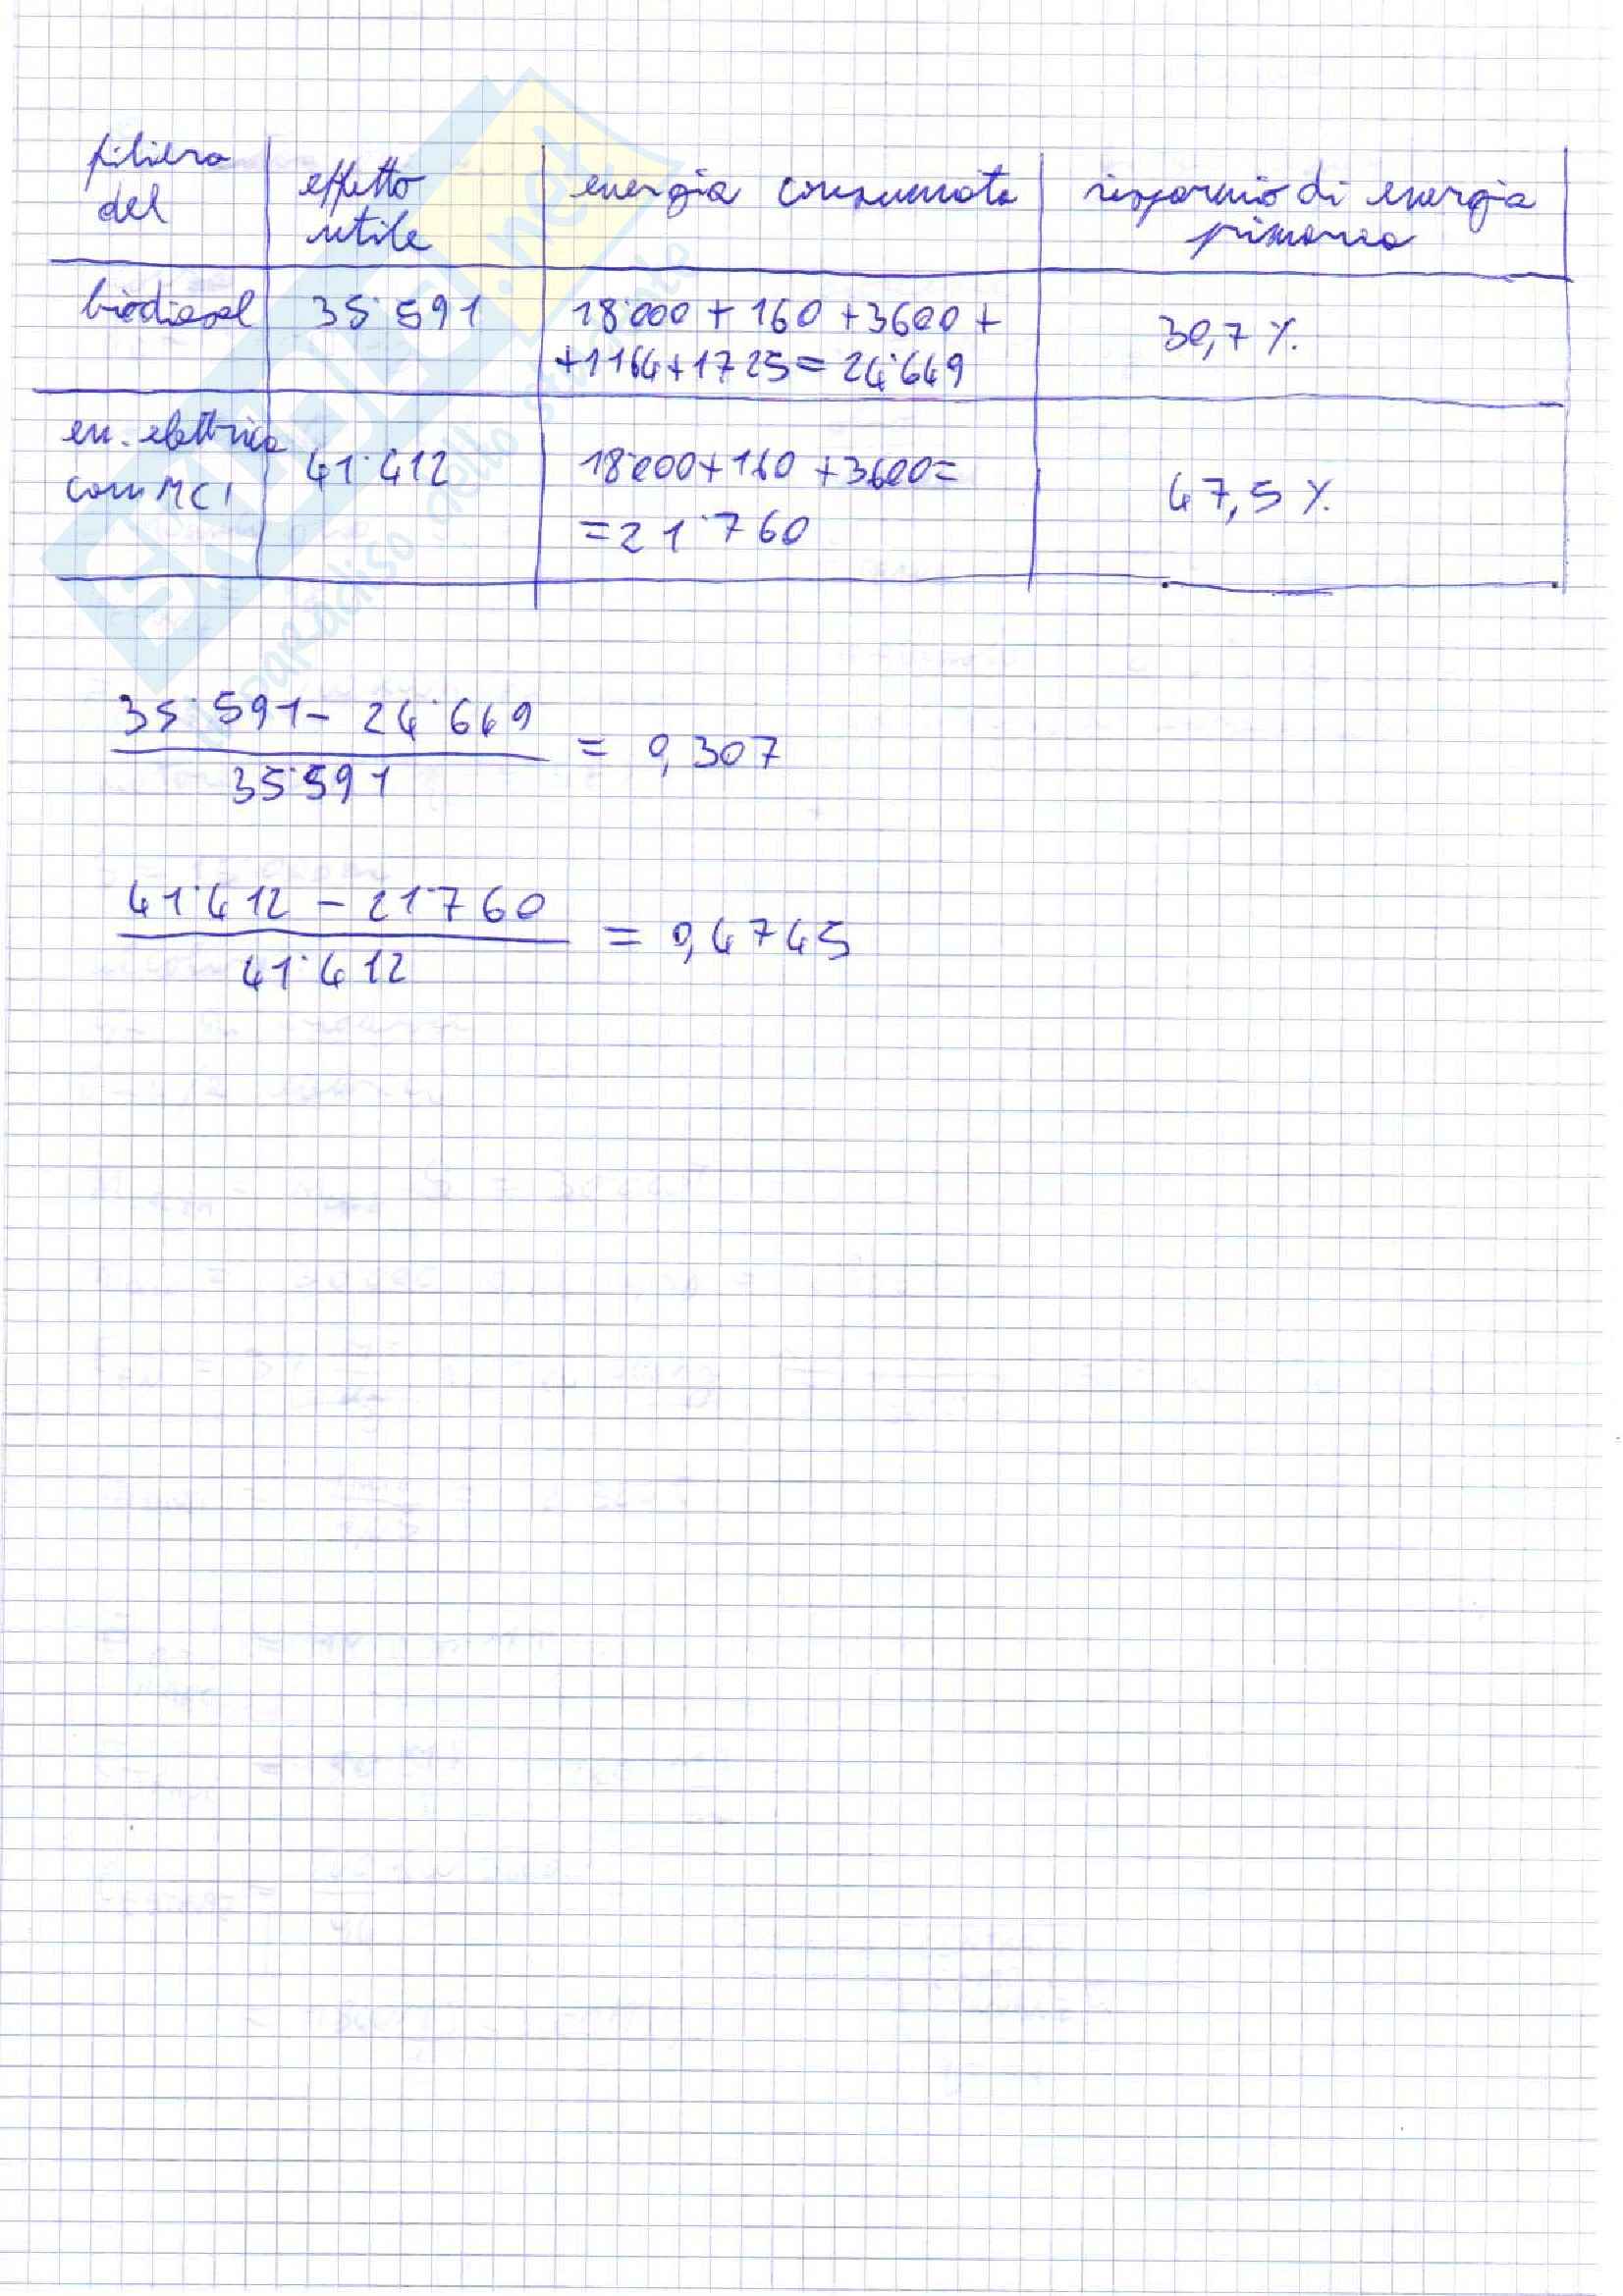 filiera del | effetto utile | energia consumata | risparmio di energia primaria
biodiesel | 35˙591 | 18˙000 + 160 + 3600 +
+1164+1725= 24˙649 | 30,7 %
en. elettrica con MCI | 41˙412 | 18˙000+160 +3600=
=21˙760 | 47,5 %
35˙591- 24˙649
35˙591
= 0,307
41˙412 - 21˙760
41˙412
= 0,4745
SKUOLA.net
il paradiso dello studente